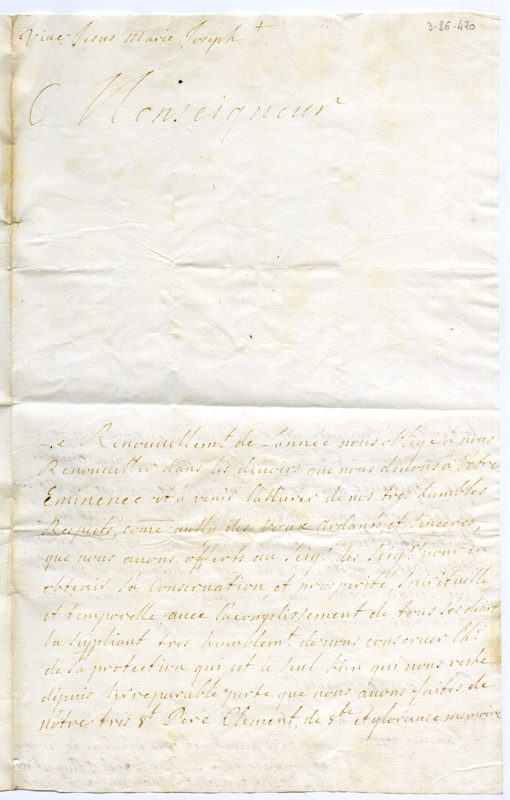 Vive Jesus Marie Joseph +
3-26-470
Monseigneur
Le Renouuellemt. de L'année nous oblige à nous
Renouueller dans les deuoirs que nous deuons à Votre
Eminence et à venir l'assurer de nos tres humbles
Respects, come aussy des vœux ardants et sinceres
que nous auons offerts au Seigr. des Seigrs. pour en
obtenir sa Conseruation et prosperité Spirituelle
et temporelle auec l'acomplissement de tous ses desirs
la supliant tres humblemt. de nous conseruer
de sa protection qui est le seul bien qui nous reste
depuis l'irreparable perte que nous auons faites de
nôtre tres St. Pere Clement, de Ste. et glorieuse memoire